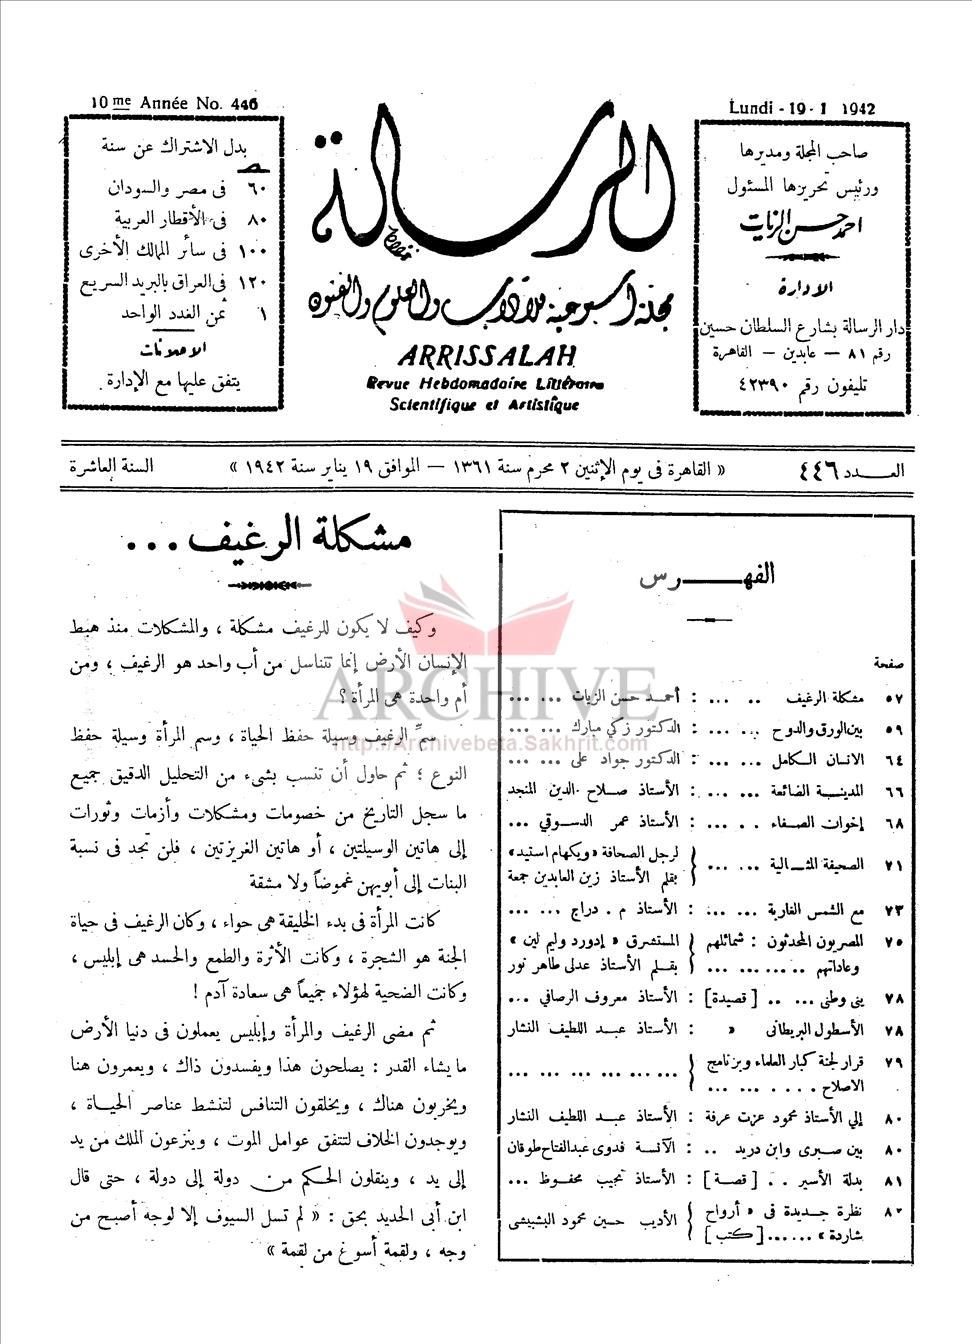 10me Année No. 446
Lundi - 19 - 1 1942
بدل الاشتراك عن سنة
ص
٦٠ فى مصر والسودان
٨٠ فى الأقطار العربية
١٠٠ فى سائر الممالك الأخرى
١٢٠ فى العراق بالبريد السريع
١ ثمن العدد الواحد
الاعلانات
يتفق عليها مع الإدارة
الرسالة
مجلة أسبوعية للآداب والعلوم والفنون
ARRISSALAH
Revue Hebdomadaire Littéraire
Scientifique et Artistique
صاحب المجلة ومديرها
ورئيس تحريرها المسئول
احمد حسن الزيات
الادارة
دار الرسالة بشارع السلطان حسين
رقم ٨١ — عابدين — القاهرة
تليفون رقم ٤٢٣٩٠
العـــدد ٤٤٦
« القاهرة فى يوم الإثنين ٢ محرم سنة ١٣٦١ — الموافق ١٩ يناير سنة ١٩٤٢ »
السنة العاشرة
الفهـــــرس
صفحة
٥٧ مشكلة الرغيف .. ... : أحمد حسن الزيات ... ...
٥٩ بين الورق والدوح ... ... : الدكتور زكي مبارك ... ...
٦٤ الانسان الكامل ... ... : الدكتور جواد على ... ...
٦٦ المدينة الضائعة ... ... : الأستاذ صلاح الدين المنجد
٦٨ إخوان الصفاء . . ... : الأستاذ عمر الدسوقي ...
٧١ الصحيفة المثالية ... ... { لرجل الصحافة «ويكهام استيد»
بقلم الأستاذ زين العابدين جمعة
٧٣ مع الشمس الغاربة ... ... : الأستاذ م . دراج ... ...
٧٥ المصريون المحدثون : شمائلهم { المستشرق « إدورد وليم لين »
وعاداتهم .. ... ... ... بقلم الأستاذ عدلى طاهر نور
٧٨ بنى وطنى ... .. [ قصيدة ] : الأستاذ معروف الرصافي ...
٧٨ الأسطول البريطانى » : الأستاذ عبد اللطيف النشار
٧٩ قرار لجنة كبار العلماء وبرنامج { ... ... ... ... ... ...
الاصلاح . . . . ... ...
٨٠ إلي الأستاذ محمود عزت عرفة : الأستاذ عبد اللطيف النشار
٨٠ بين صبرى وابن دريد .. : الآنسة فدوى عبدالفتاح طوقان
٨١ بدلة الأسير . . [ قصة ] : الأستاذ نجيب محفوظ ...
٨٢ نظرة جديدة فى « أرواح { الأديب حسين محمود البشبيشى
شاردة » ... ... [ كتب ]
مشكلة الرغيف ...
وكيف لا يكون للرغيف مشكلة ، والمشكلات منذ هبط
الإنسان الأرض إنما تتناسل من أب واحد هو الرغيف ، ومن
أم واحدة هى المرأة ؟
سمِّ الرغيف وسيلة حفظ الحياة ، وسم المرأة وسيلة حفظ
النوع ؛ ثم حاول أن تنسب بشىء من التحليل الدقيق جميع
ما سجل التاريخ من خصومات ومشكلات وأزمات وثورات
إلى هاتين الوسيلتين ، أو هاتين الغريزتين ، فلن تجد فى نسبة
البنات إلى أبويهن غموضاً ولا مشقة
كانت المرأة فى بدء الخليقة هى حواء ، وكان الرغيف فى حياة
الجنة هو الشجرة ، وكانت الأثرة والطمع والحسد هى إبليس ،
وكانت الضحية لهؤلاء جميعاً هى سعادة آدم !
ثم مضى الرغيف والمرأة وإبليس يعملون فى دنيا الأرض
ما يشاء القدر : يصلحون هذا ويفسدون ذاك ، ويعمرون هنا
ويخربون هناك ، ويخلقون التنافس لتنشط عناصر الحياة ،
ويوجدون الخلاف لتتفق عوامل الموت ، وينزعون الملك من يد
إلى يد ، وينقلون الحكم من دولة إلى دولة ، حتى قال
ابن أبى الحديد بحق : « لم تسل السيوف إلا لوجه أصبح من
وجه ، ولقمة أسوغ من لقمة »
ARCHIVE
http://Archivebeta.Sakhrit.com